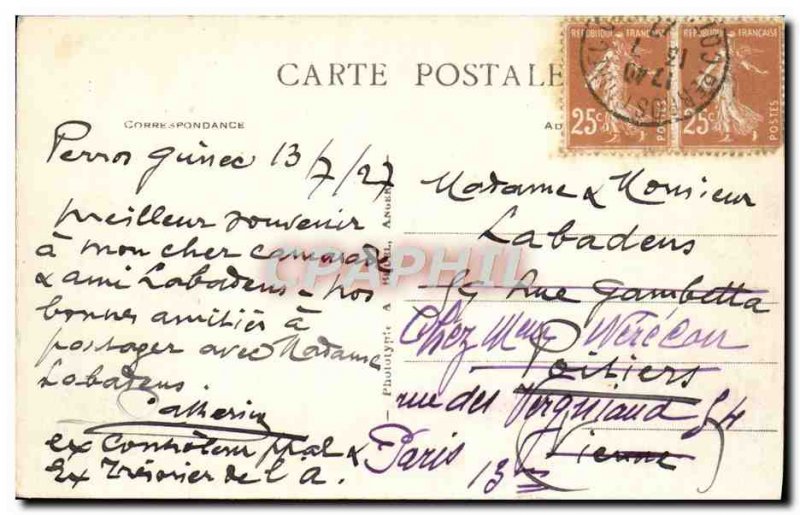 CARTE POSTALE
REPUBLIQUE FRANÇAISE
25c
POSTES
REPUBLIQUE FRANÇAISE
25c
POSTES
17 40
13 7
CORRESPONDANCE
Perros guirec 13/7/27
meilleur souvenir
à mon cher camarade
& ami Labadens - nos
bonnes amitiés à
partager avec Madame
Labadens.
ex Contrôleur pal &
Ex Trésorier de l'a.
Phototypie A
ANGERS
Madame & Monsieur
Labadens
rue Gambetta
Chez
Poitiers
rue Vergniaud 54
(Vienne)
Paris 13
CPAPHIL